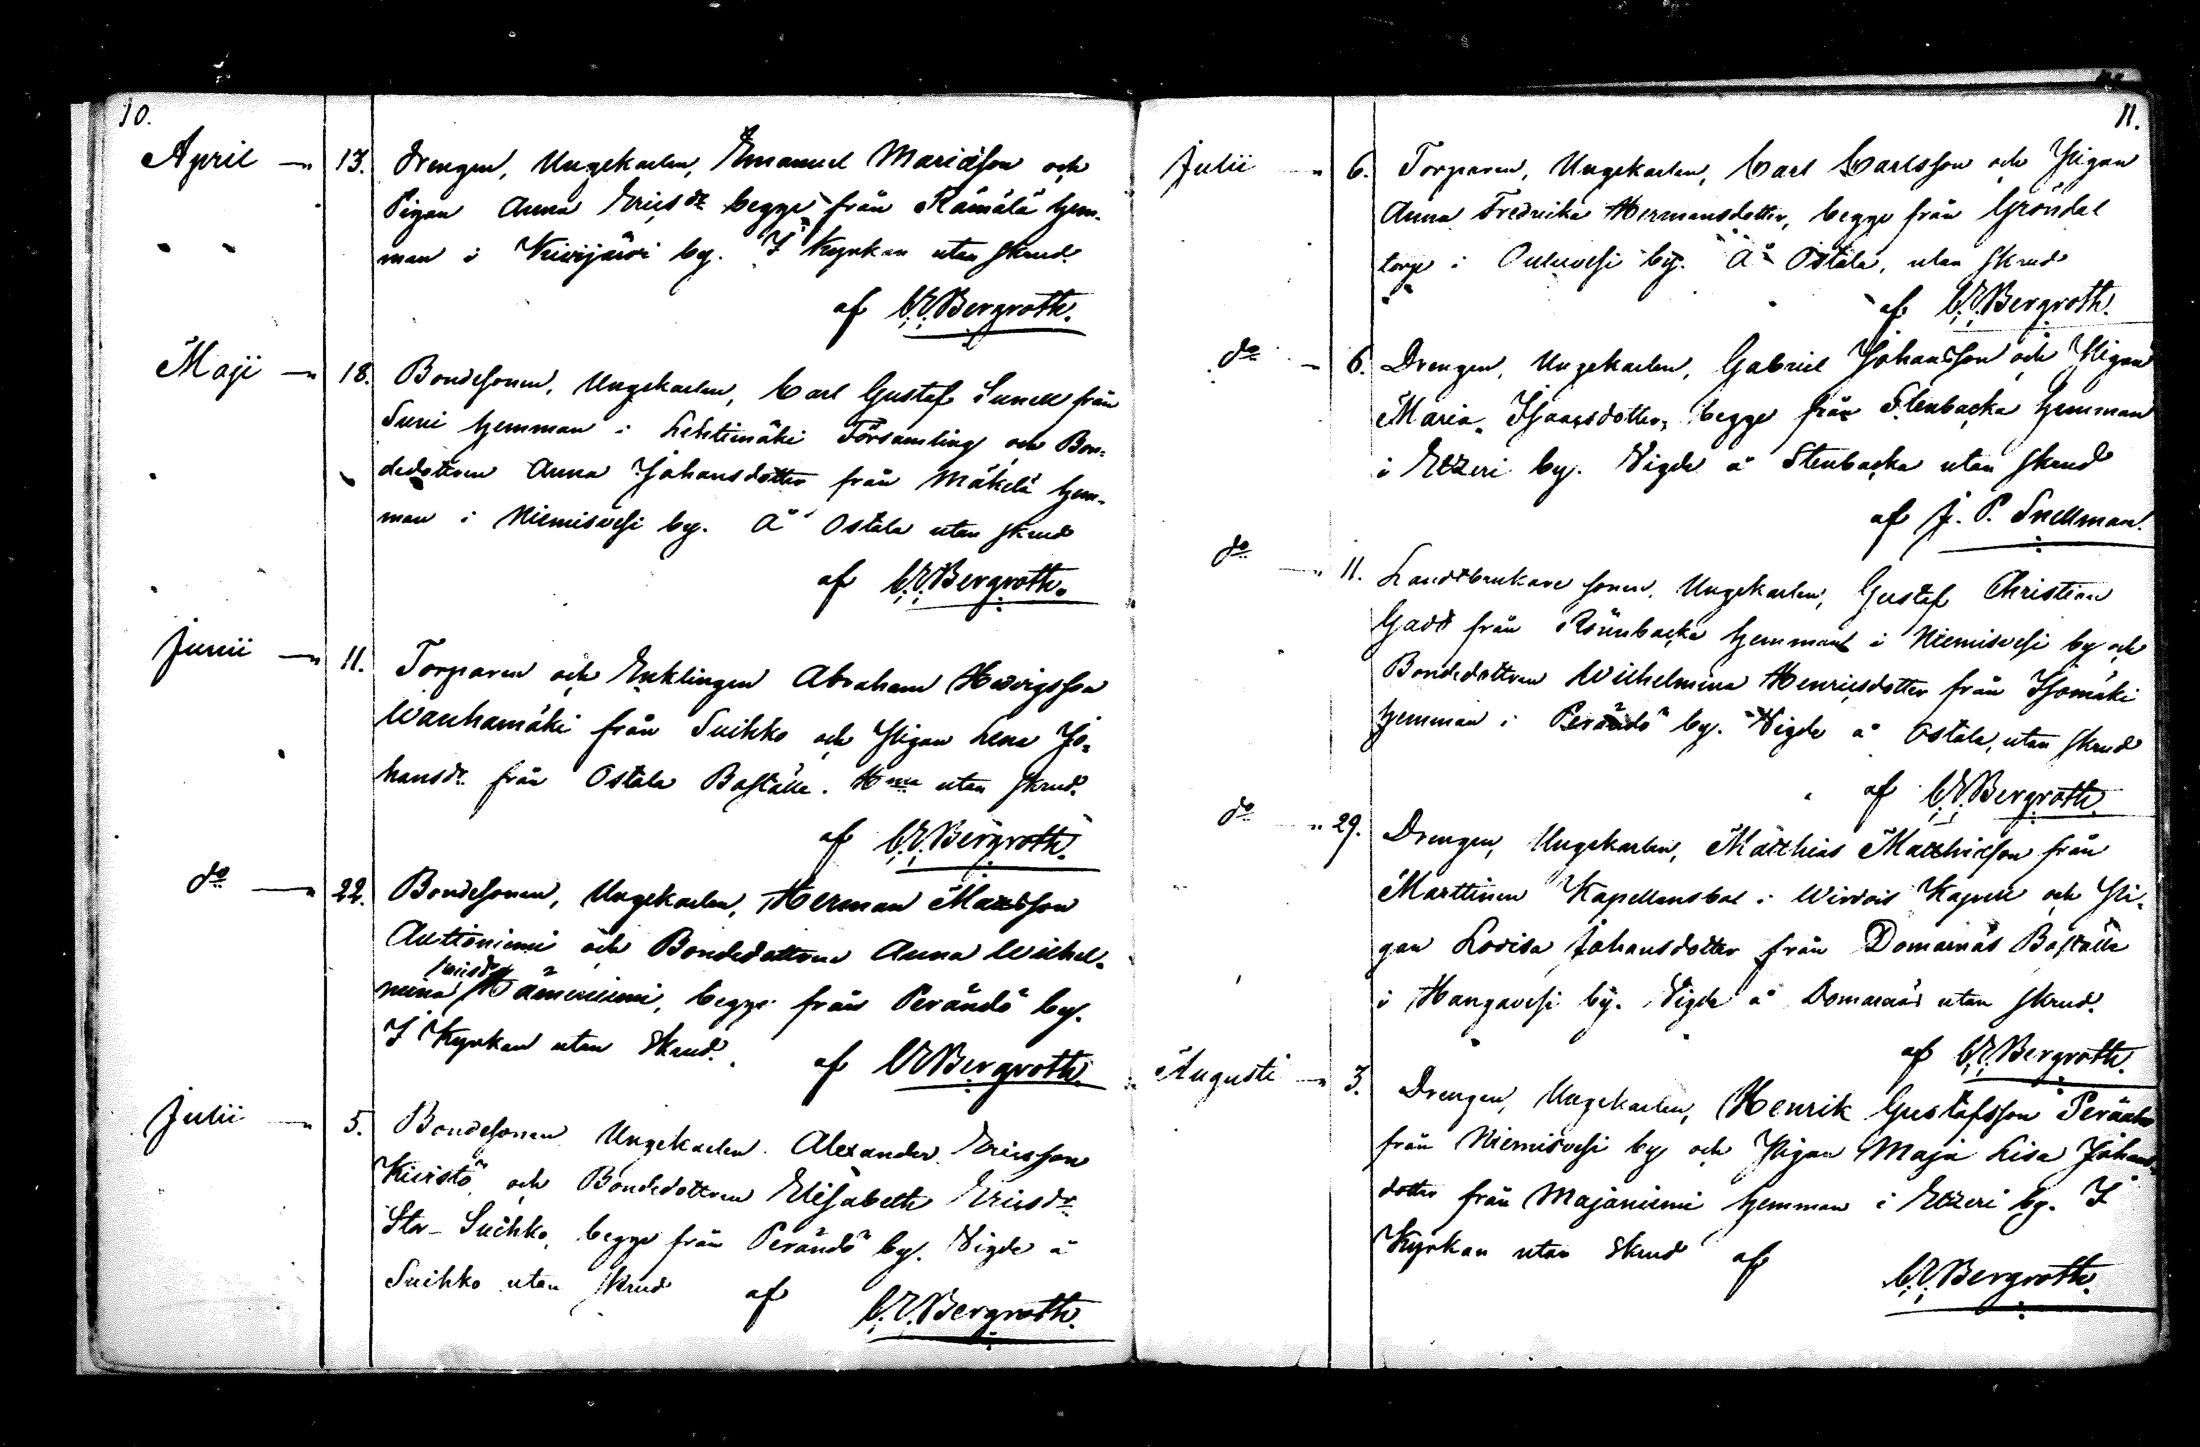 10.
April — 13. Drengen, Ungekarlen, Emanuel Mariæson och
Pigan Anna Ericsdr begge från Rämälä hem-
man i Kivijärvi by. I Kyrkan utan skrud.
af C.E. Bergroth.
Maji — 18. Bondesonen, Ungekarlen, Carl Gustaf Sunell från
Suni hemman i Lehtimäki Församling och Bon-
dedottren Anna Johansdotter från Mäkelä hem-
man i Niemisvesi by. Å Ostola utan skrud
af C.E. Bergroth.
Junii — 11. Torparen och Enklingen Abraham Hedvigsson
Wanhamäki från Suihko och Pigan Lena Jo-
hansdr. från Ostola Boställe. Hma utan skrud.
af C.E. Bergroth.
do — 22. Bondesonen, Ungekarlen, Herman Mattsson
Auttoniemi och Bondedottren Anna Wilhel-
mina Hämeniemi, begge från Perändö by.
I Kyrkan utan skrud. af C.E. Bergroth.
Julii — 5. Bondesonen Ungekarlen Alexander Ericsson
Kivistö och Bondedottren Elisabeth Ericsdr
Stor-Suihko, begge från Perändö by. Vigde å
Suihko utan skrud af C.E. Bergroth.
11.
Julii — 6. Torparen, Ungekarlen, Carl Carlsson och Pigan
Anna Fredrika Hermansdotter, begge från Gröndal
torp i Ouluvesi by. Å Ostola, utan skrud
af C.E. Bergroth.
do — 6. Drengen, Ungekarlen, Gabriel Johansson och Pigan
Maria Isaacsdotter, begge från Stenbacka hemman
i Etzeri by. Vigde å Stenbacka utan skrud
af J. P. Snellman.
do — 11. Landtbrukare sonen, Ungekarlen, Gustaf Christian
Gadd från Rönnbacka hemman i Niemisvesi by och
Bondedottren Wilhelmina Henricsdotter från Isomäki
hemman i Perändö by. Vigde å Ostola, utan skrud
af C.E. Bergroth.
do " 29. Drengen, Ungekarlen, Matthias Matthiesson från
Marttinen Kapellansbol i Wirdois Kapell och Pi-
gan Lovisa Johansdotter från Domarnäs Boställe
i Hangavesi by. Vigde å Domarnäs utan skrud.
af C.E. Bergroth.
Augusti — 3. Drengen, Ungekarlen, Henrik Gustafsson
från Niemisvesi by och Pigan Maja Lisa Johans-
dotter från Majaniemi hemman i Etzeri by. I
Kyrkan utan skrud af C.E. Bergroth.